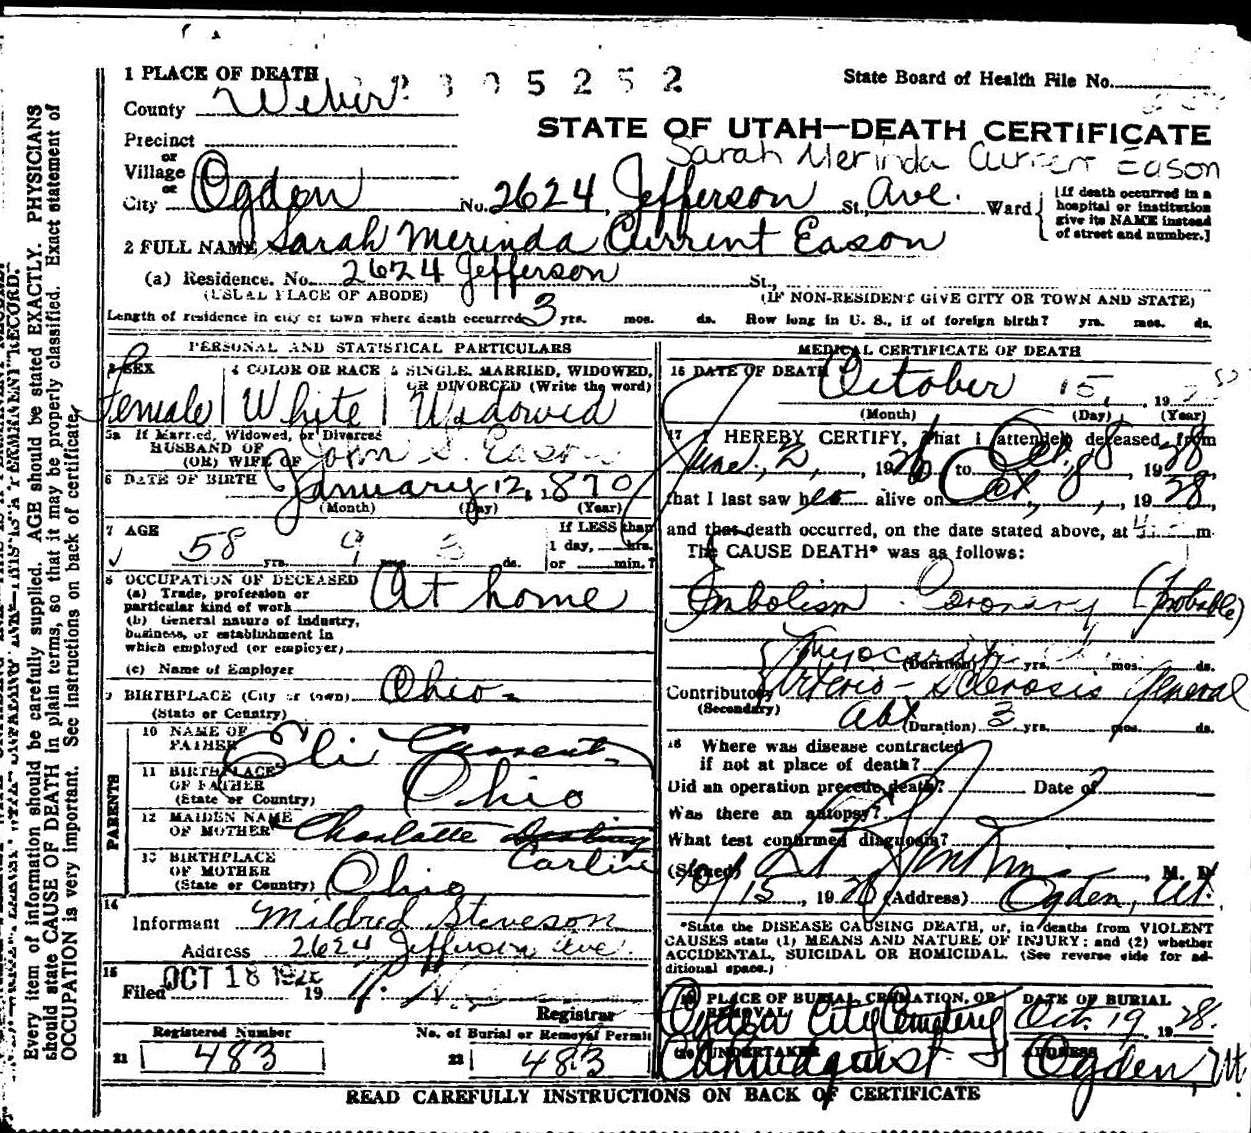 1 PLACE OF DEATH
305252
State Board of Health File No.
County Weber
STATE OF UTAH—DEATH CERTIFICATE
Precinct
or
Village
or
Sarah Merinda Current Eason
City Ogden No. 2624 Jefferson St., Ave. Ward
[If death occurred in a hospital or institution give its NAME instead of street and number.]
2 FULL NAME Sarah Merinda Current Eason
(a) Residence. No. 2624 Jefferson St.,
(USUAL PLACE OF ABODE) (IF NON-RESIDENT GIVE CITY OR TOWN AND STATE)
Length of residence in city or town where death occurred 3 yrs. mos. ds. How long in U. S., if of foreign birth? yrs. mos. ds.
PERSONAL AND STATISTICAL PARTICULARS
3 SEX 4 COLOR OR RACE 5 SINGLE, MARRIED, WIDOWED, OR DIVORCED (Write the word)
Female White Widowed
5a If Married, Widowed, or Divorced
HUSBAND OF
(OR) WIFE OF John S. Eason
6 DATE OF BIRTH January 12, 1870
(Month) (Day) (Year)
7 AGE
58 yrs. 9 mos. 3 ds.
If LESS than
1 day, hrs.
or min.?
8 OCCUPATION OF DECEASED
(a) Trade, profession or
particular kind of work At home
(b) General nature of industry,
business, or establishment in
which employed (or employer)
(c) Name of Employer
9 BIRTHPLACE (City or town) Ohio
(State or Country)
PARENTS
10 NAME OF
FATHER Eli Current
11 BIRTHPLACE
OF FATHER Ohio
(State or Country)
12 MAIDEN NAME
OF MOTHER Charlotte
Carline
13 BIRTHPLACE
OF MOTHER Ohio
(State or Country)
14
Informant Mildred Steveson
Address 2624 Jefferson Ave.
15
Filed OCT 18 19
Registrar
Registered Number No. of Burial or Removal Permit
21 483 22 483
MEDICAL CERTIFICATE OF DEATH
16 DATE OF DEATH October 15, 19
(Month) (Day) (Year)
17 I HEREBY CERTIFY, that I attended deceased from
June 2, 19 to Oct. 8 1928
that I last saw her alive on Oct. 8, 1928,
and that death occurred, on the date stated above, at 4 m.
The CAUSE DEATH* was as follows:
Embolism Coronary (Probable)
Myocarditis
(Duration) yrs. mos. ds.
Contributory Arterio-sclerosis General
(Secondary)
abt (Duration) 3 yrs. mos. ds.
18 Where was disease contracted
if not at place of death?
Did an operation precede death? Date of
Was there an autopsy?
What test confirmed diagnosis?
(Signed) M. D.
10/15, 1928 (Address) Ogden, Ut.
*State the DISEASE CAUSING DEATH, or, in deaths from VIOLENT
CAUSES state (1) MEANS AND NATURE OF INJURY; and (2) whether
ACCIDENTAL, SUICIDAL OR HOMICIDAL. (See reverse side for ad-
ditional space.)
19 PLACE OF BURIAL, CREMATION, OR REMOVAL DATE OF BURIAL
Ogden City Cemetery Oct. 19 1928.
(20) UNDERTAKER ADDRESS
Ogden, Ut.
READ CAREFULLY INSTRUCTIONS ON BACK OF CERTIFICATE
Every item of information should be carefully supplied. AGE should be stated EXACTLY. PHYSICIANS
should state CAUSE OF DEATH in plain terms, so that it may be properly classified. Exact statement of
OCCUPATION is very important. See instructions on back of certificate.